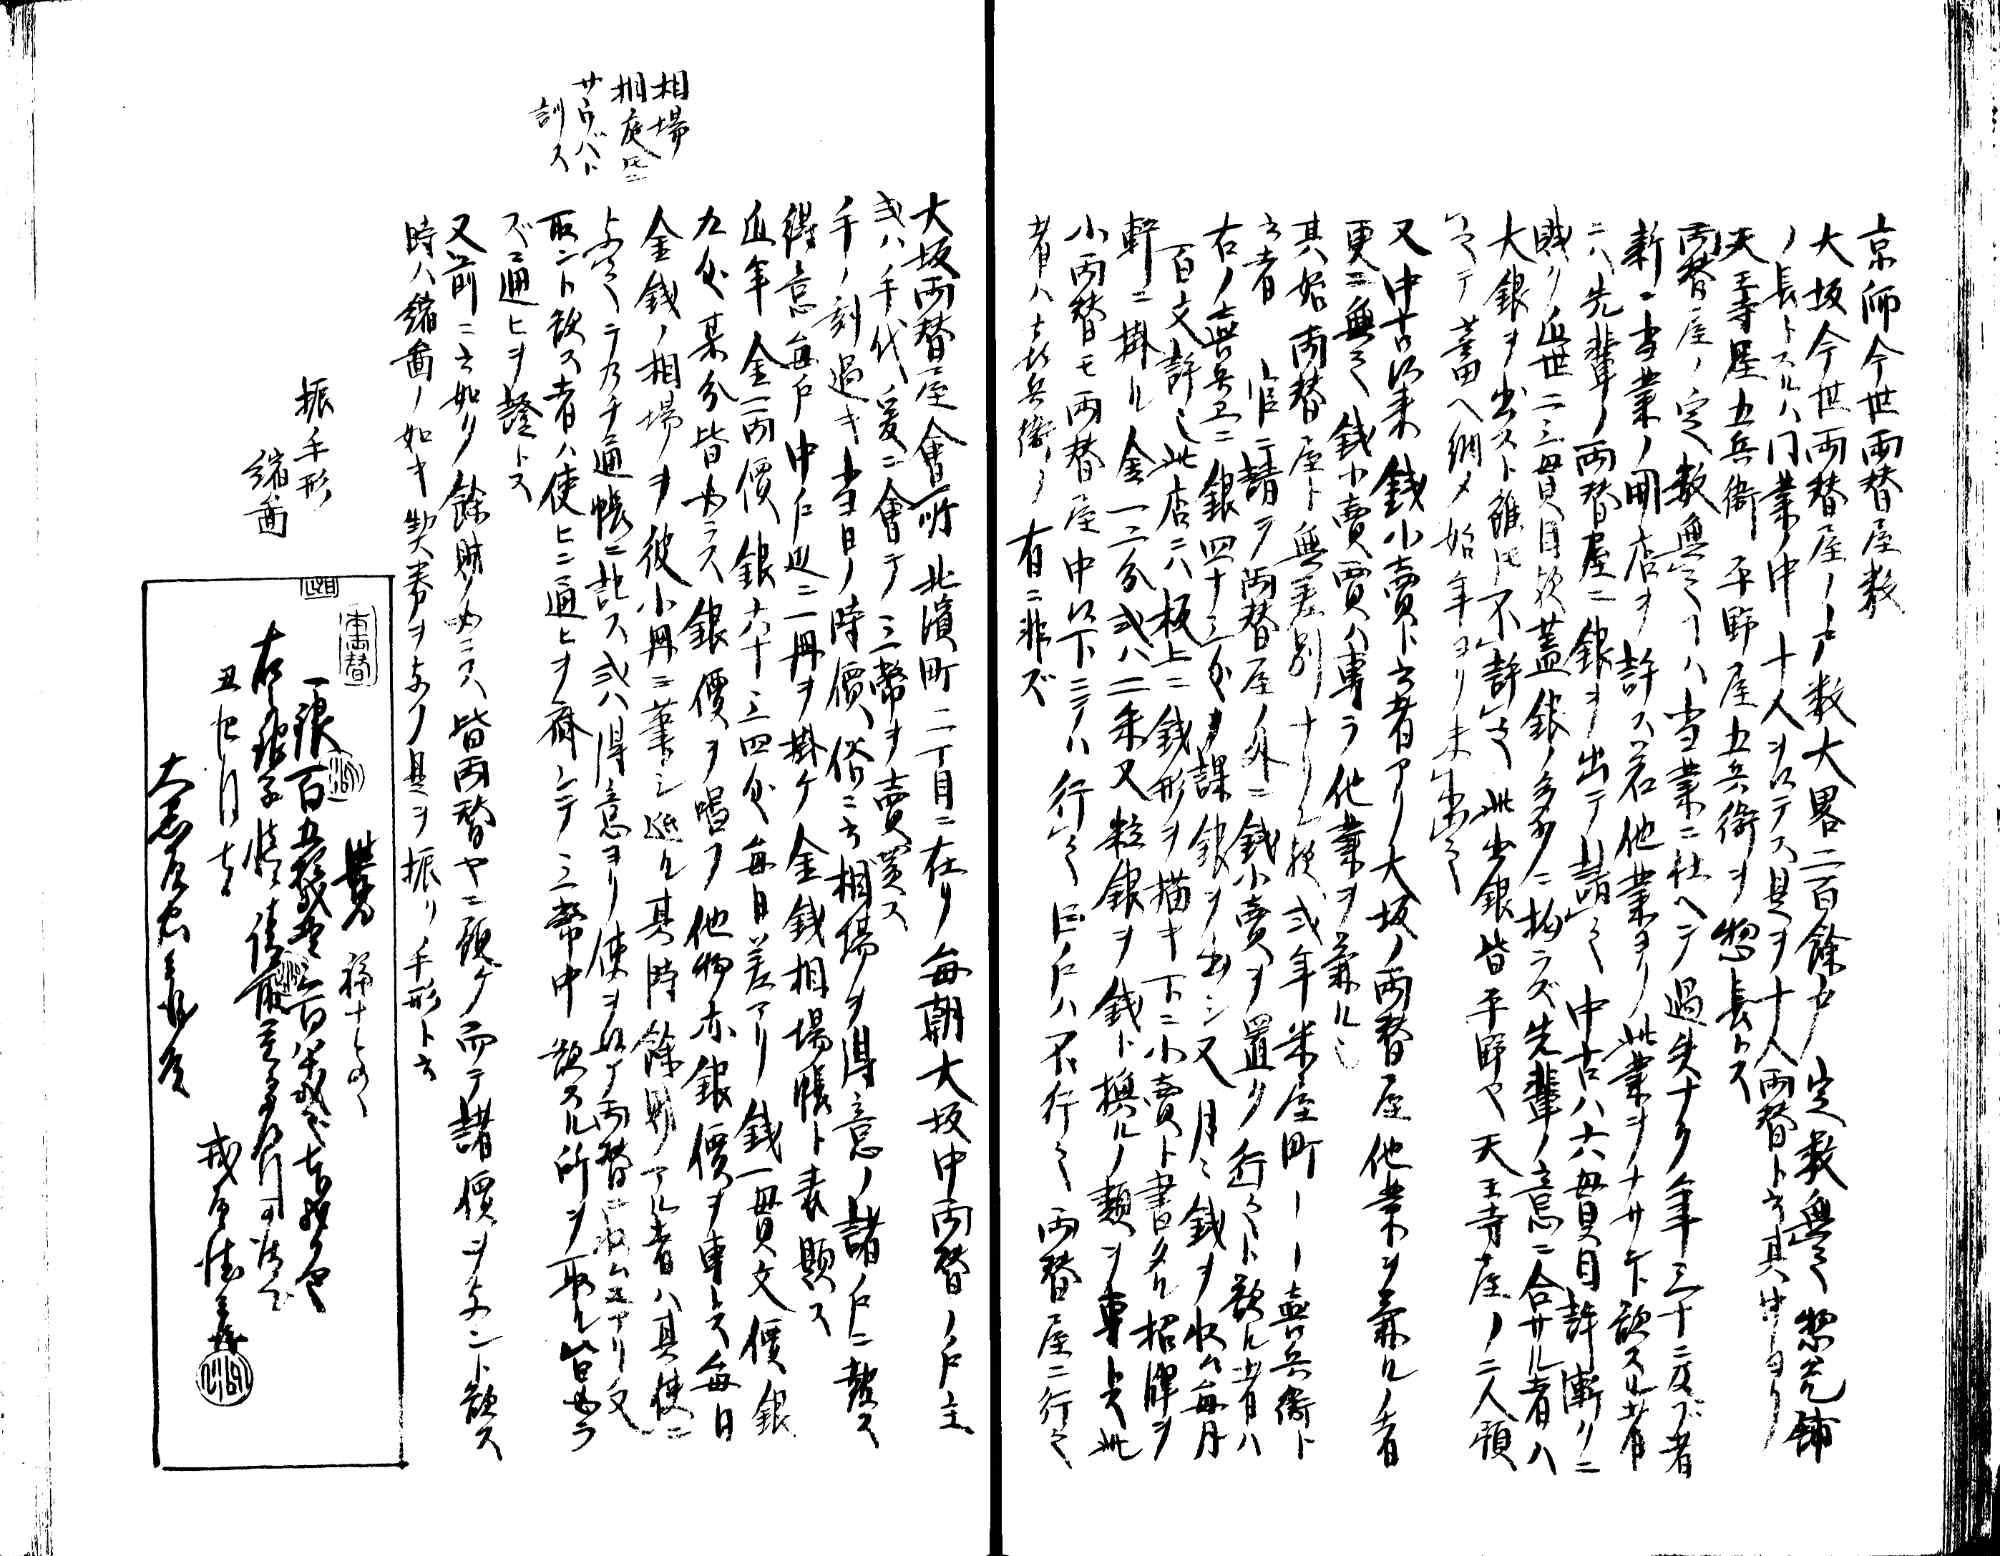 京師今世両替屋数
大坂今世両替屋ノ戸数大畧二百餘戸 定数無之 惣老舗
ノ長トスルハ同業ノ中十人ヲ以テス是ヲ十人両替ト云其中ヨリ
天王寺屋五兵衛 平野屋五兵衛ヲ惣長トス
両替屋ノ定数無之ーハ当業ニ仕ヘテ過失ナク年三十ニ及ブ者
新ニ当業ノ開店ヲ許ス若他業ヨリ此業ヲナサント欲スル者
ハ先輩ノ両替屋ニ銀ヲ出テ請之 中古ハ六貫目許漸クニ
賎ク近世二三貫目欤蓋銀ノ多少ニ拘ラズ先輩ノ意ニ合サル者ハ
大銀ヲ出スト雖モ不許之 此出銀皆平野ヤ天王寺屋ノ二人預
之テ蓄ヘ納メ始年ヨリ未出之
又中古以来銭小賣ト云者アリ大坂ノ両替屋他業ヲ兼ルノ者
更ニ無之 銭小賣買ハ専ラ他業ヲ兼ル也
其始両替屋ト無差別ナリシ 或年米屋町ーー喜兵衛ト
云者 官ニ請ヲ両替屋ノ外ニ銭小賣ヲ置ク 行之ト欲ル者ハ
右ノ喜兵卫ニ銀四十三匁ヲ課銀ヲ出シ又月々銭ヲ收ム毎月
百文許也此店ニハ板上ニ銭形ヲ描キ下ニ小賣ト書タル招牌ヲ
軒ニ掛ル金一二分或ハ二朱又粒銀ヲ銭ト換ルノ類ヲ専トス此
小両替モ両替屋中以下ニテハ行之 巨戸ハ不行之 両替屋ニ行之
者ハ喜兵衛ノ有ニ非ズ
相場
相庭トモニ
サウバト
訓ス
大坂両替屋會所北濱町二丁目ニ在リ毎朝大坂中両替ノ戸主
或ハ手代爰ニ會テ三幣ヲ賣買ス
午ノ刻過キ当日ノ時價俗ニ云相場ヲ得意ノ諸戸ニ報ス
得意毎戸中戸辺ニ一冊ヲ掛ケ金銭相場帳ト表題ス
近年金一両價銀六十三四匁毎日差アリ銭一貫文價銀
九匁某分皆然ラス銀價ヲ唱フ他物亦銀價ヲ専トス毎日
金銭ノ相場ヲ彼小冊ニ筆シ巡ル其時餘財アル者ハ其使ニ
与之テ乃チ通帳ニ記ス或ハ得意ヨリ使ヲ以テ両替ニ收ムモアリ又
取ント欲ス者ハ使ヒニ通ヒヲ齎シテ三幣中欲スル所ヲ取ル皆必ラ
ズ通ヒヲ證トス
又前ニ云如ク餘財ノ必ス皆両替ヤニ預ケ而テ諸價ヲ与ント欲ス
時ハ縮圖ノ如キ契券ヲ与フ是ヲ振リ手形ト云
振手形
縮圖
本両替
一銀百五拾
右之銀子
丑七月